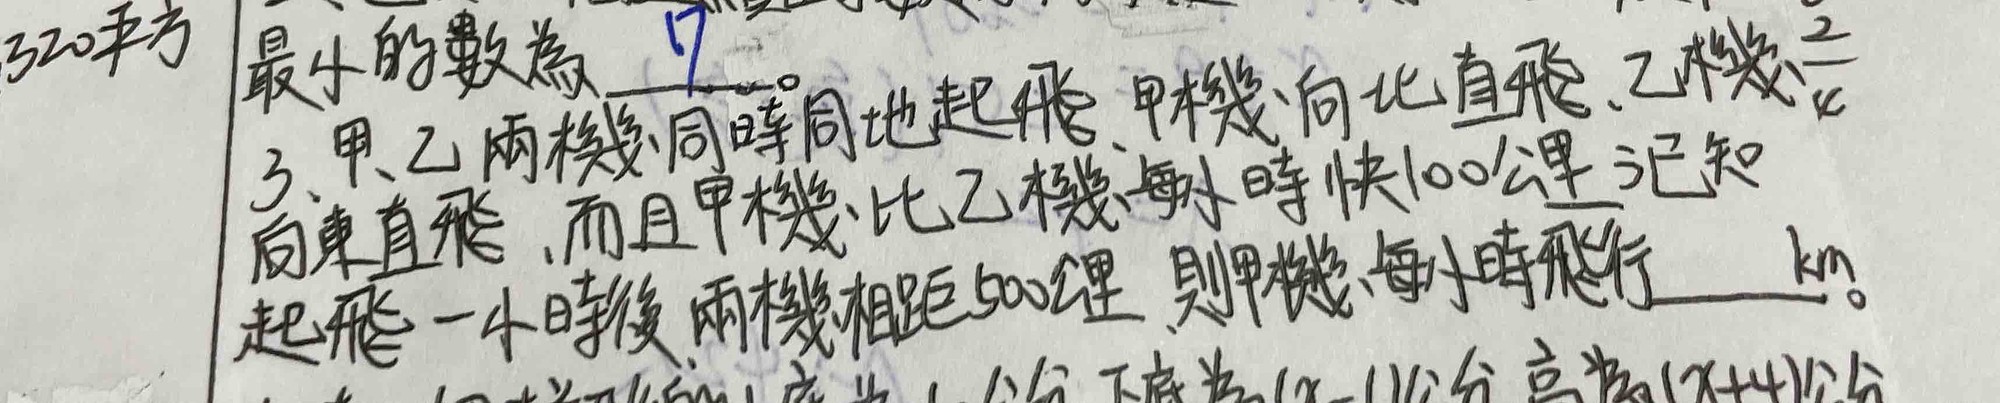 320平方
最小的數為 17 。
3、甲、乙兩機同時同地起飛、甲機向北直飛、乙機
2
向東直飛、而且甲機比乙機每小時快100公里 已知
起飛一小時後、兩機相距500公里、則甲機每小時飛行 km。
下底為(x-1)公分 高為(x+4)公分